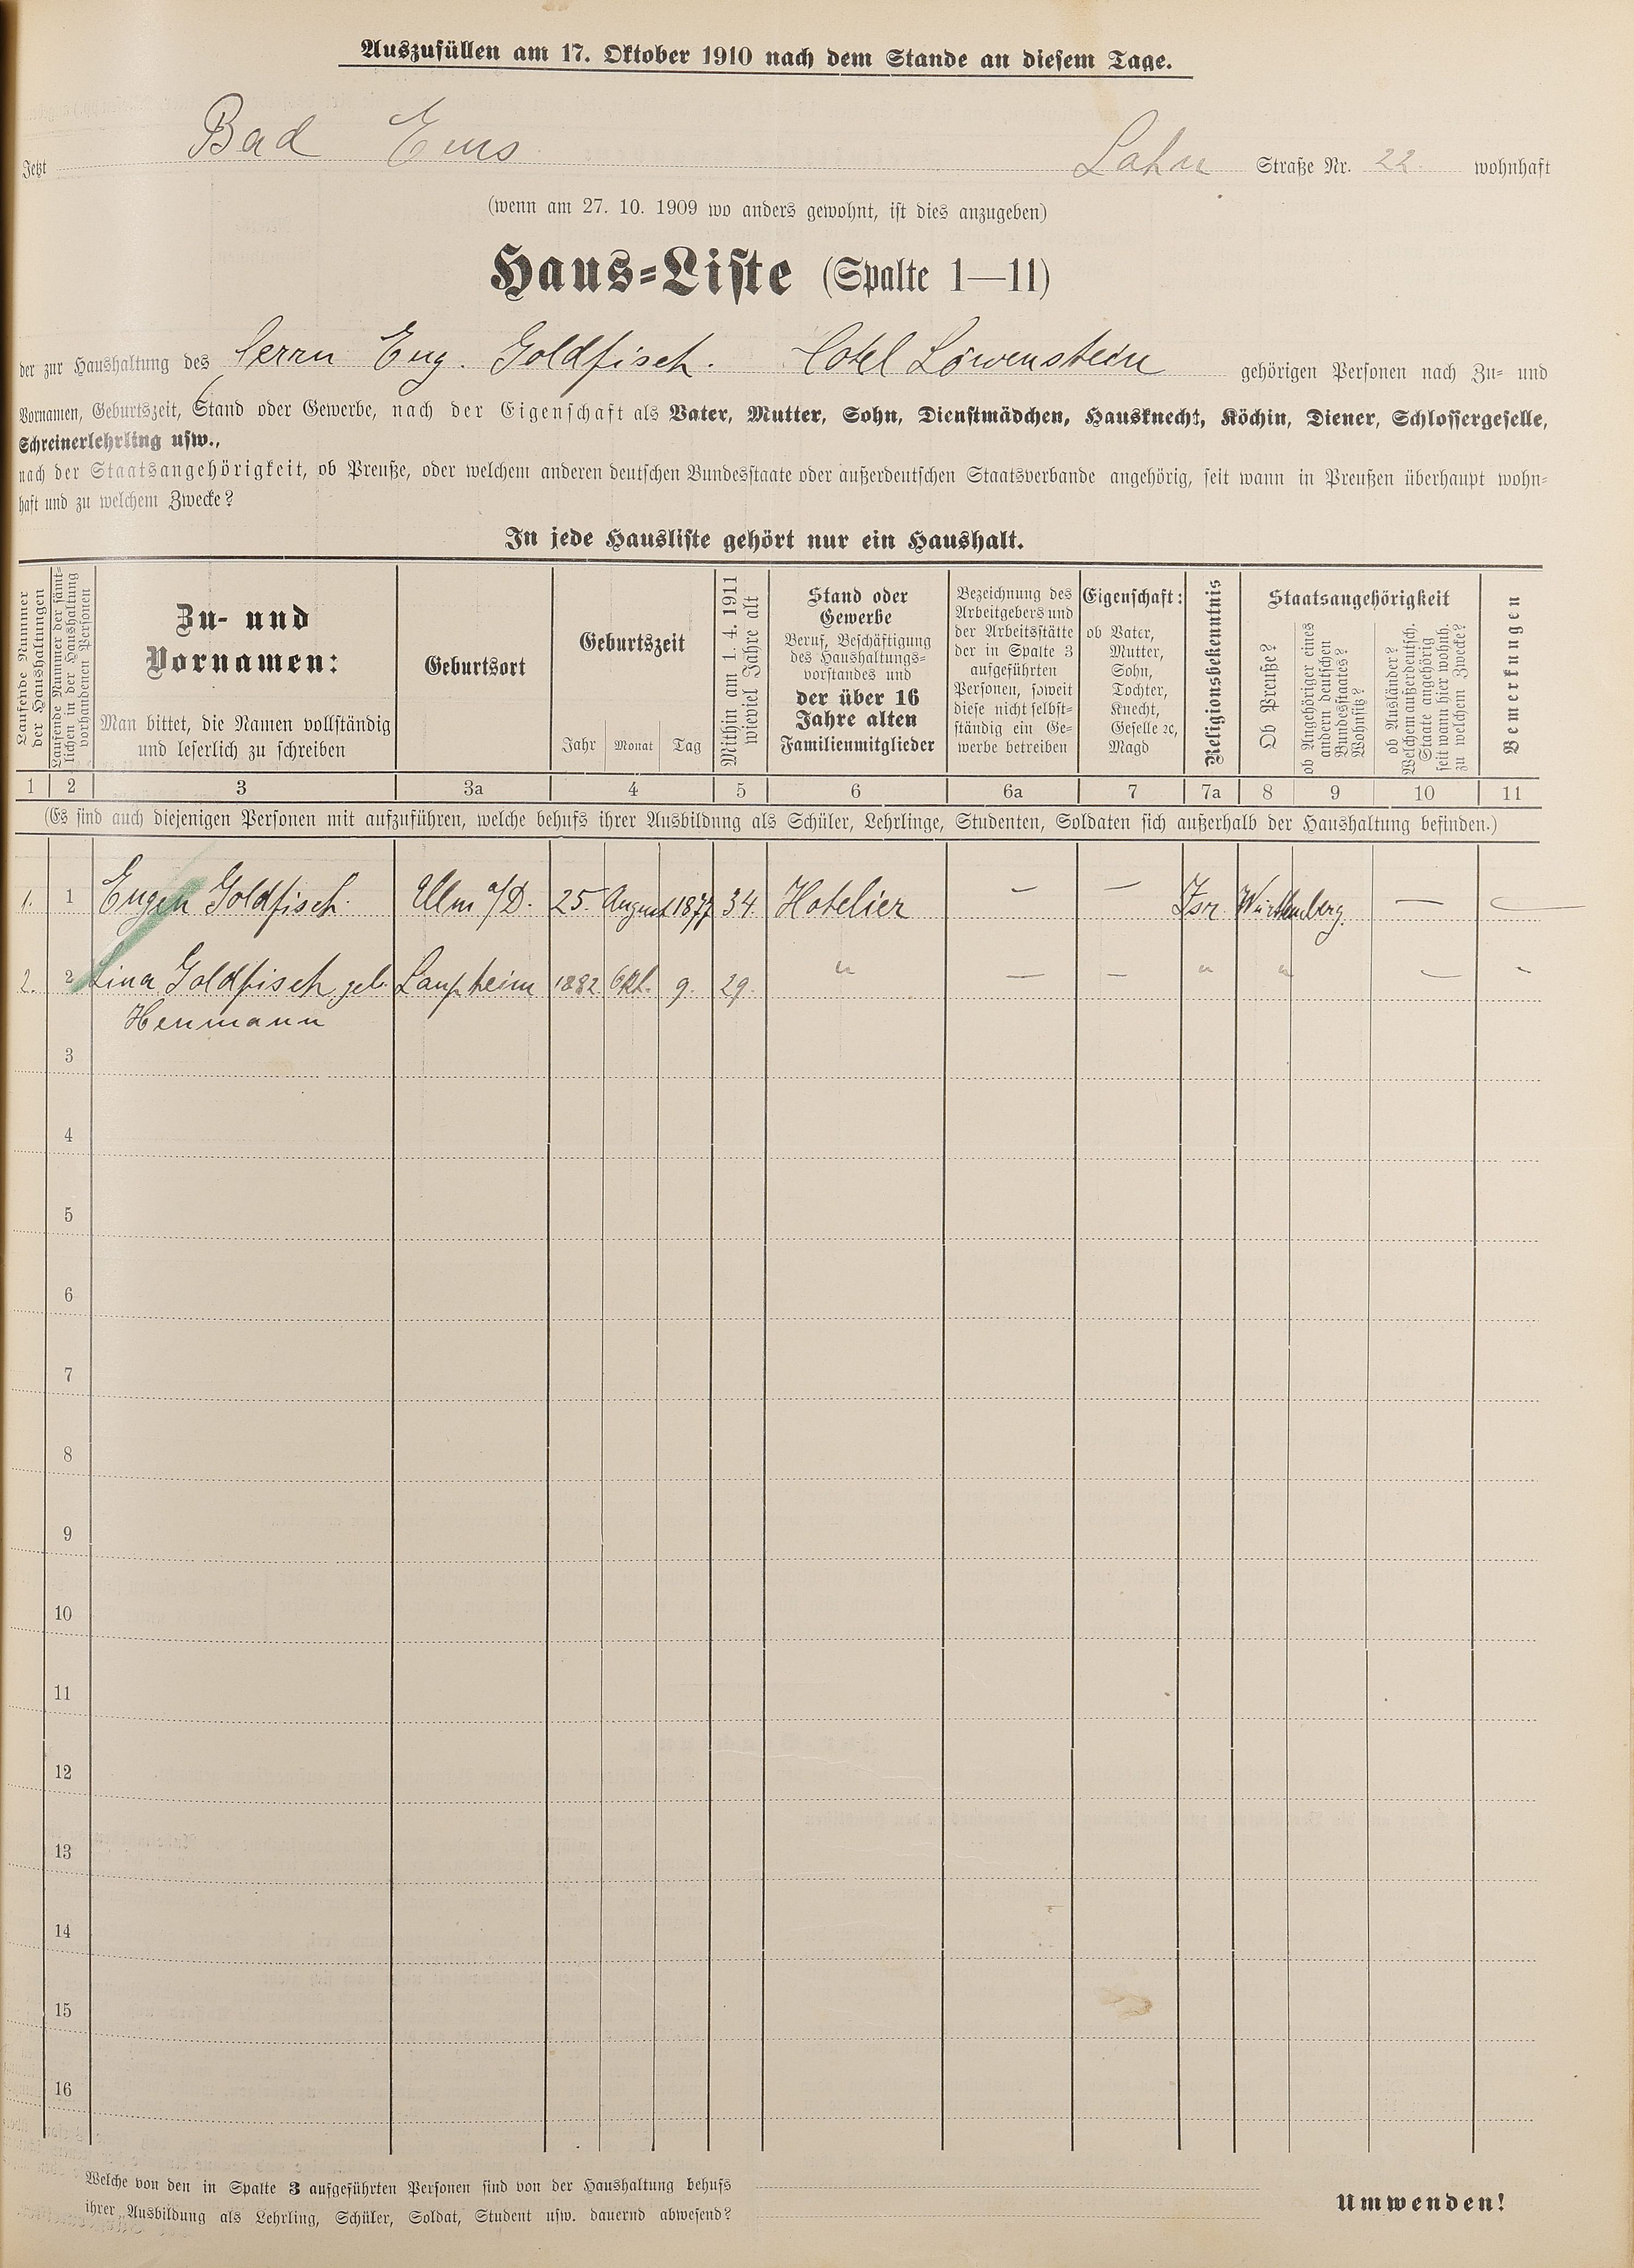 Auszufüllen am 17. Oktober 1910 nach dem Stande an diesem Tage.
Jetzt Bad Ems Lahn Straße Nr. 22. wohnhaft
(wenn am 27. 10. 1909 wo anders gewohnt, ist dies anzugeben)
Haus-Liste (Spalte 1—11)
der zur Haushaltung des Herrn Eug. Goldfisch. Hotel Löwenstein gehörigen Personen nach Zu- und
Vornamen, Geburtszeit, Stand oder Gewerbe, nach der Eigenschaft als Vater, Mutter, Sohn, Dienstmädchen, Hausknecht, Köchin, Diener, Schlossergeselle,
Schreinerlehrling usw.,
nach der Staatsangehörigkeit, ob Preuße, oder welchem anderen deutschen Bundesstaate oder außerdeutschen Staatsverbande angehörig, seit wann in Preußen überhaupt wohn-
haft und zu welchem Zwecke?
In jede Hausliste gehört nur ein Haushalt.
Laufende Nummer
der Haushaltungen
Laufende Nummer der sämt-
lichen in der Haushaltung
vorhandenen Personen
Zu- und
Vornamen:
Man bittet, die Namen vollständig
und leserlich zu schreiben
Geburtsort
Geburtszeit
Jahr Monat Tag
Mithin am 1. 4. 1911
wieviel Jahre alt
Stand oder
Gewerbe
Beruf, Beschäftigung
des Haushaltungs-
vorstandes und
der über 16
Jahre alten
Familienmitglieder
Bezeichnung des
Arbeitgebers und
der Arbeitsstätte
der in Spalte 3
aufgeführten
Personen, soweit
diese nicht selbst-
ständig ein Ge-
werbe betreiben
Eigenschaft:
ob Vater,
Mutter,
Sohn,
Tochter,
Knecht,
Geselle ꝛc,
Magd
Religionsbekenntnis
Staatsangehörigkeit
Ob Preuße?
ob Angehöriger eines
andern deutschen
Bundesstaates?
Wohnsitz?
ob Ausländer?
Welchem außerdeutsch.
Staate angehörig
seit wann hier wohnh.
zu welchem Zwecke?
Bemerkungen
1 2 3 3a 4 5 6 6a 7 7a 8 9 10 11
(Es sind auch diejenigen Personen mit aufzuführen, welche behufs ihrer Ausbildung als Schüler, Lehrlinge, Studenten, Soldaten sich außerhalb der Haushaltung befinden.)
1. 1 Eugen Goldfisch. Ulm a/D. 25. August 1877 34. Hotelier — — Isr. Württemberg. — —
2. 2 Lina Goldfisch geb. Laupheim 1882 Okt. 9. 29. " — — " " — -
Henmann
3
4
5
6
7
8
9
10
11
12
13
14
15
16
Welche von den in Spalte 3 aufgeführten Personen sind von der Haushaltung behufs
ihrer Ausbildung als Lehrling, Schüler, Soldat, Student usw. dauernd abwesend?
Umwenden!